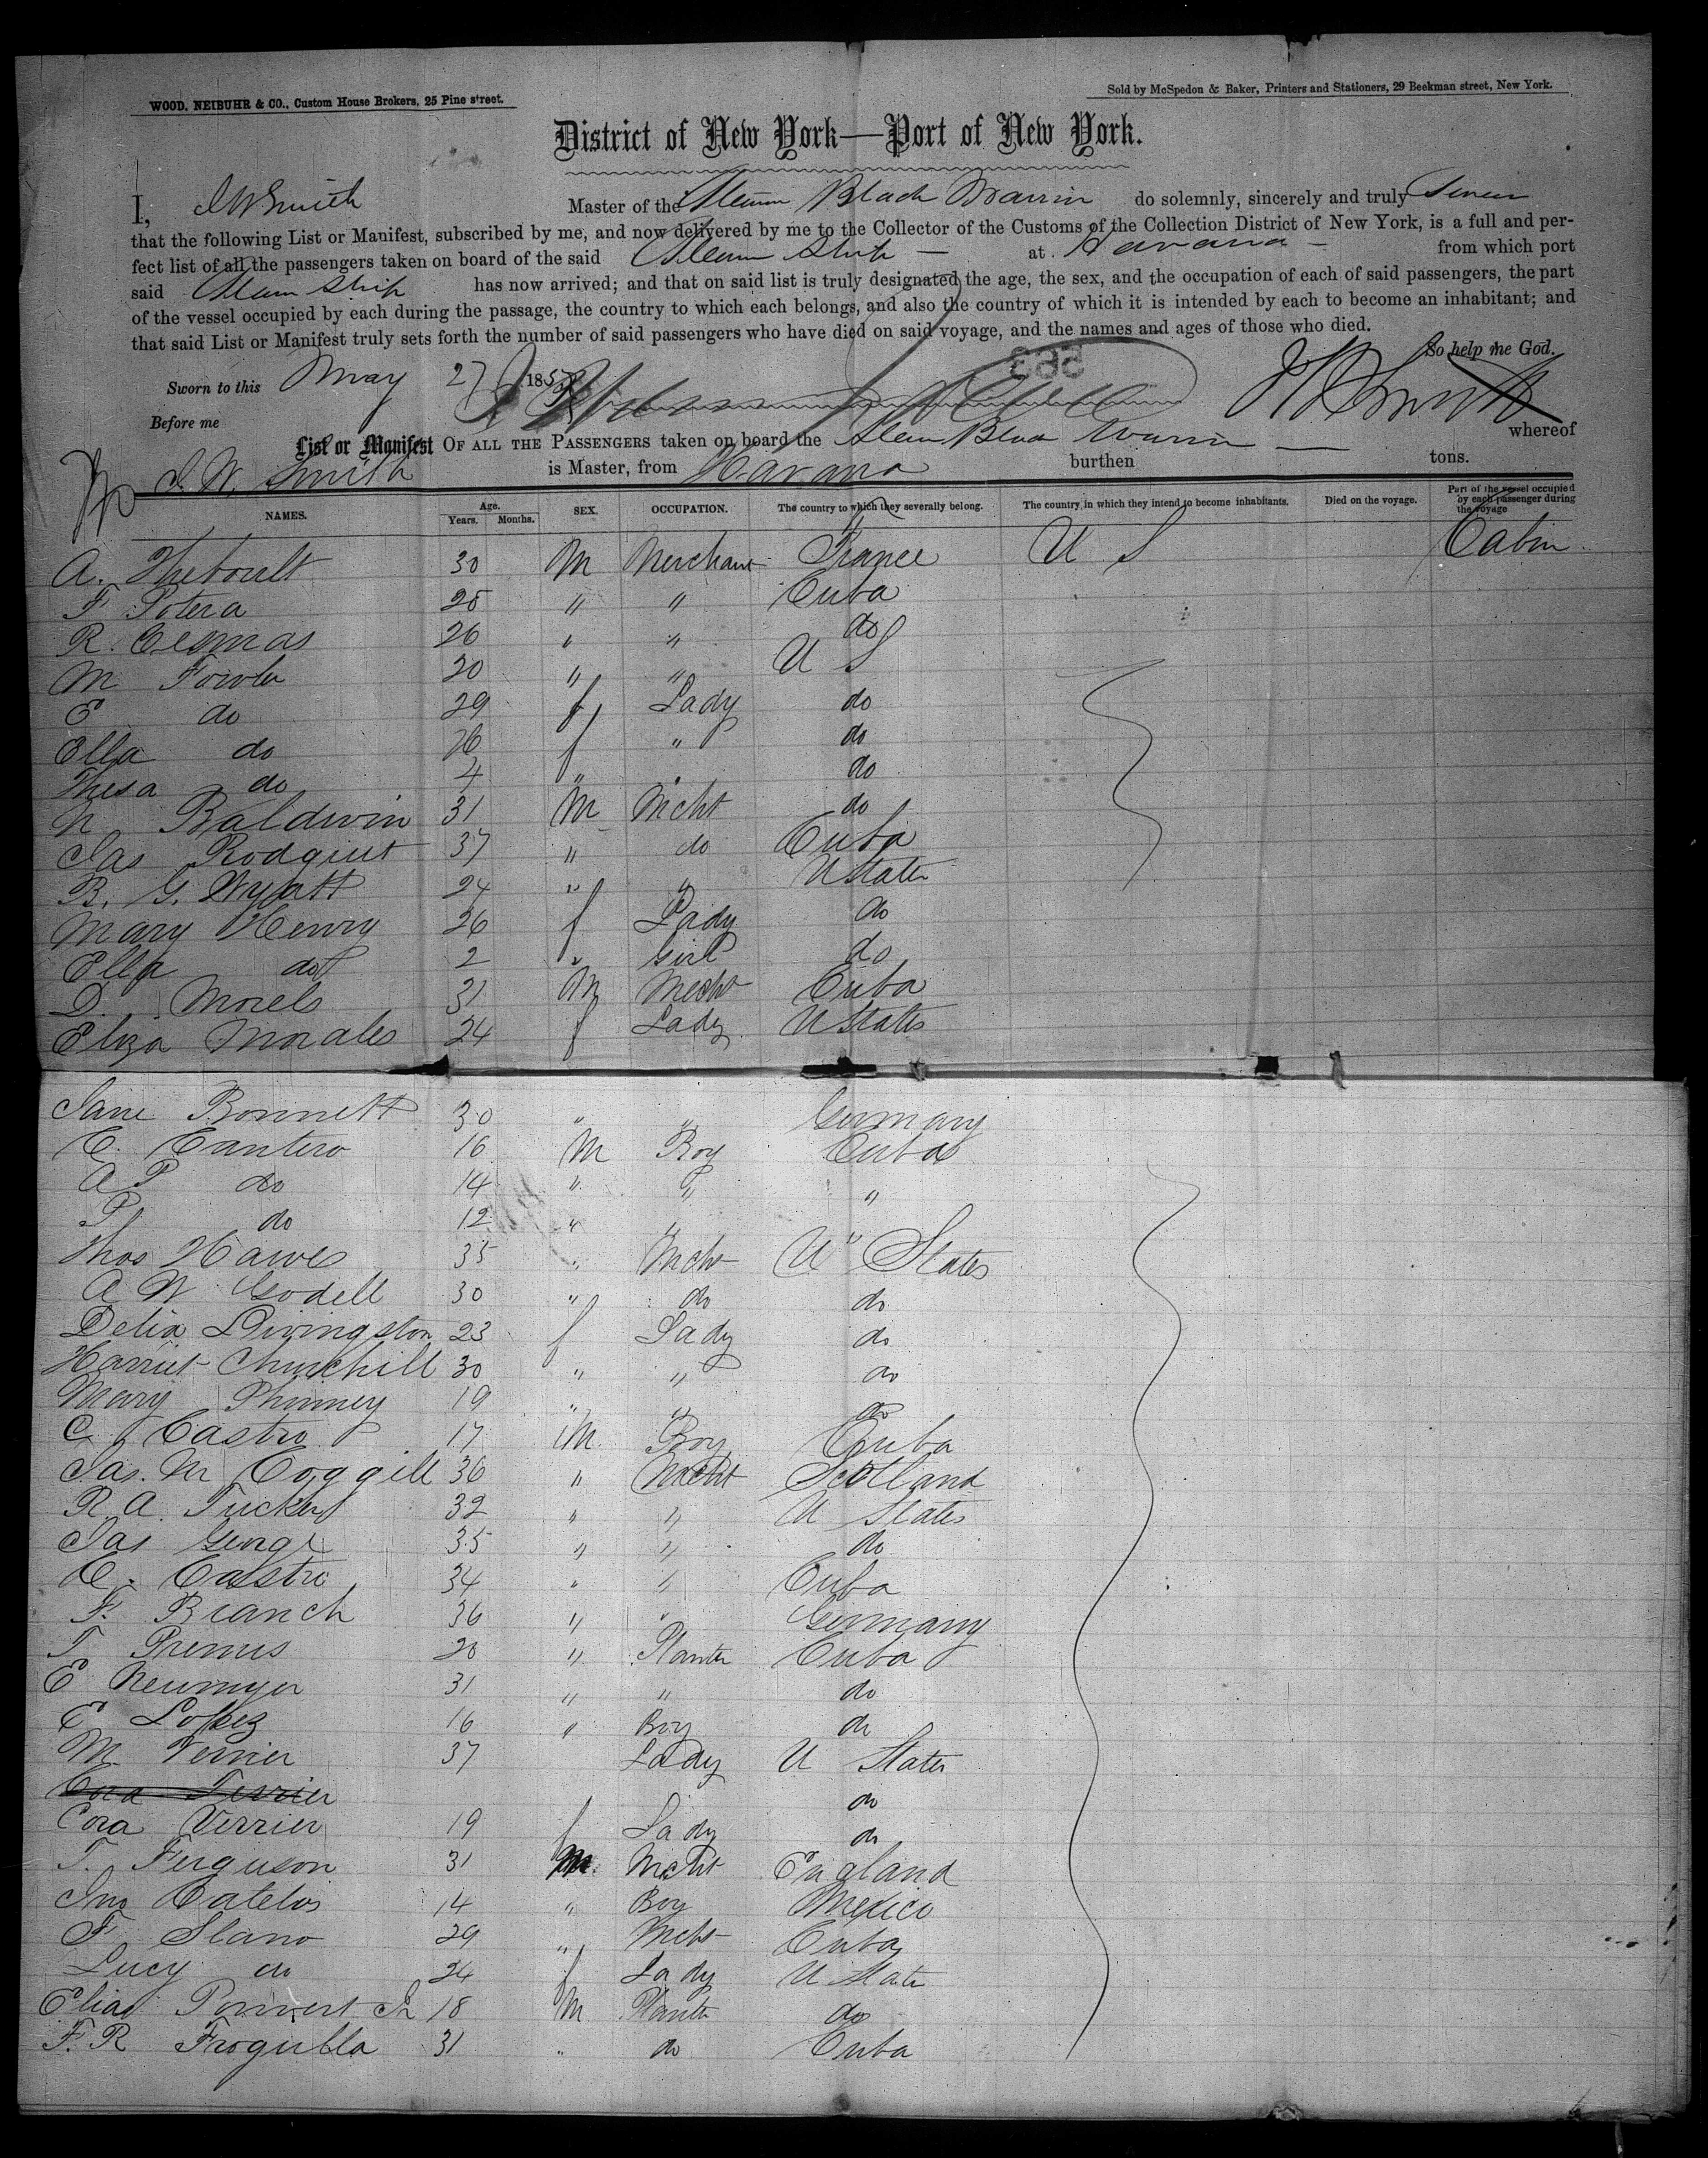 WOOD, NEIBUHR & CO., Custom House Brokers, 25 Pine street.
Sold by McSpedon & Baker, Printers and Stationers, 29 Beekman street, New York.
District of New York—Port of New York.
I, J W Smith Master of the Steamer Black Warrior do solemnly, sincerely and truly Swear
that the following List or Manifest, subscribed by me, and now delivered by me to the Collector of the Customs of the Collection District of New York, is a full and per-
fect list of all the passengers taken on board of the said Steam Ship — at Havana — from which port
said Steam Ship has now arrived; and that on said list is truly designated the age, the sex, and the occupation of each of said passengers, the part
of the vessel occupied by each during the passage, the country to which each belongs, and also the country of which it is intended by each to become an inhabitant; and
that said List or Manifest truly sets forth the number of said passengers who have died on said voyage, and the names and ages of those who died.
So help me God.
Sworn to this May 27 185
J W Smith
Before me
List or Manifest OF ALL THE PASSENGERS taken on board the Steam Black Warrior — whereof
J. W. Smith is Master, from Havana burthen tons.
NAMES. Age. Years. Months. SEX. OCCUPATION. The country to which they severally belong. The country in which they intend to become inhabitants. Died on the voyage. Part of the vessel occupied by each passenger during the voyage
A. Theboult 30 M Merchant France U S Cabin
F Potera 25 " " Cuba
R. 26 " " do
M Fowler 20 " " U S
E do 29 f Lady do
Ella do f " do
Thesa do 4 " " do
N Baldwin 31 M Mcht do
Jas 37 " do Cuba
B. G. Wyatt 24 " " U States
Mary Henry 26 f Lady do
Ella do 2 " Girl do
D. Morels 31 M Mecht Cuba
Eliza Morales 24 f Lady U States
Jane Bonnett 30 " " Germany
E. Cantero 16 M Boy Cuba
A P do 14 " " "
P do 12 " " "
Thos Hawes 35 " Mcht U States
A W Godell 30 " do do
Delia Livingston 23 f Lady do
Harriet Churchill 30 " " do
Mary Phinney 19 " " do
C Castro 17 M Boy Cuba
Jas. M Coggill 36 " Mecht Scotland
R. A. Tucker 32 " " U States
Jas George 35 " " do
E. Castro 34 " " Cuba
F. Branch 36 " " Germany
T Premus 20 " Planter Cuba
E Neumyer 31 " " do
E Lopez 16 " Boy do
M Verrier 37 Lady U States
Cora Verrier do
Cora Verrier 19 f Lady do
T. Ferguson 31 M. Mcht England
Jno Catelos 14 " Boy Mexico
F Slano 29 " Mcht Cuba
Lucy do 24 f Lady U State
Elias Ponvert Jr 18 M Planter do
F. R 31 " do Cuba